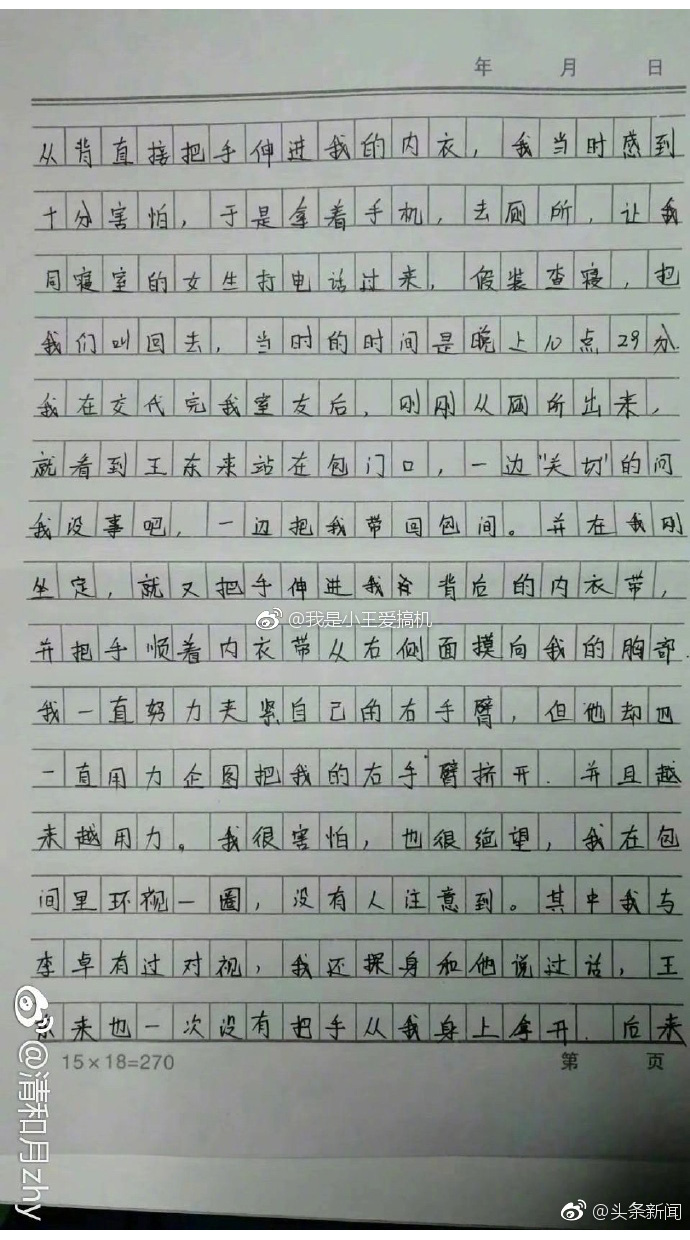 年 月 日
从背直接把手伸进我的内衣，我当时感到
十分害怕，于是拿着手机，去厕所，让我
同寝室的女生打电话过来，假装查寝，把
我们叫回去，当时的时间是晚上10点29分
我在交代完我室友后，刚刚从厕所出来，
就看到王东来站在包门口，一边“关切”的问
我没事吧，一边把我带回包间。并在我刚
坐定，就又把手伸进我背后的内衣带，
@我是小王爱搞机
并把手顺着内衣带从右侧面摸向我的胸部.
我一直努力夹紧自己的右手臂，但他却
一直用力企图把我的右手臂挤开.并且越
来越用力。我很害怕，也很绝望，我在包
间里环视一圈，没有人注意到。其中我与
李卓有过对视，我还探身和他说过话，王
东来也一次没有把手从我身上拿开.后来
15×18=270 第 页
@清和月zhy
@头条新闻